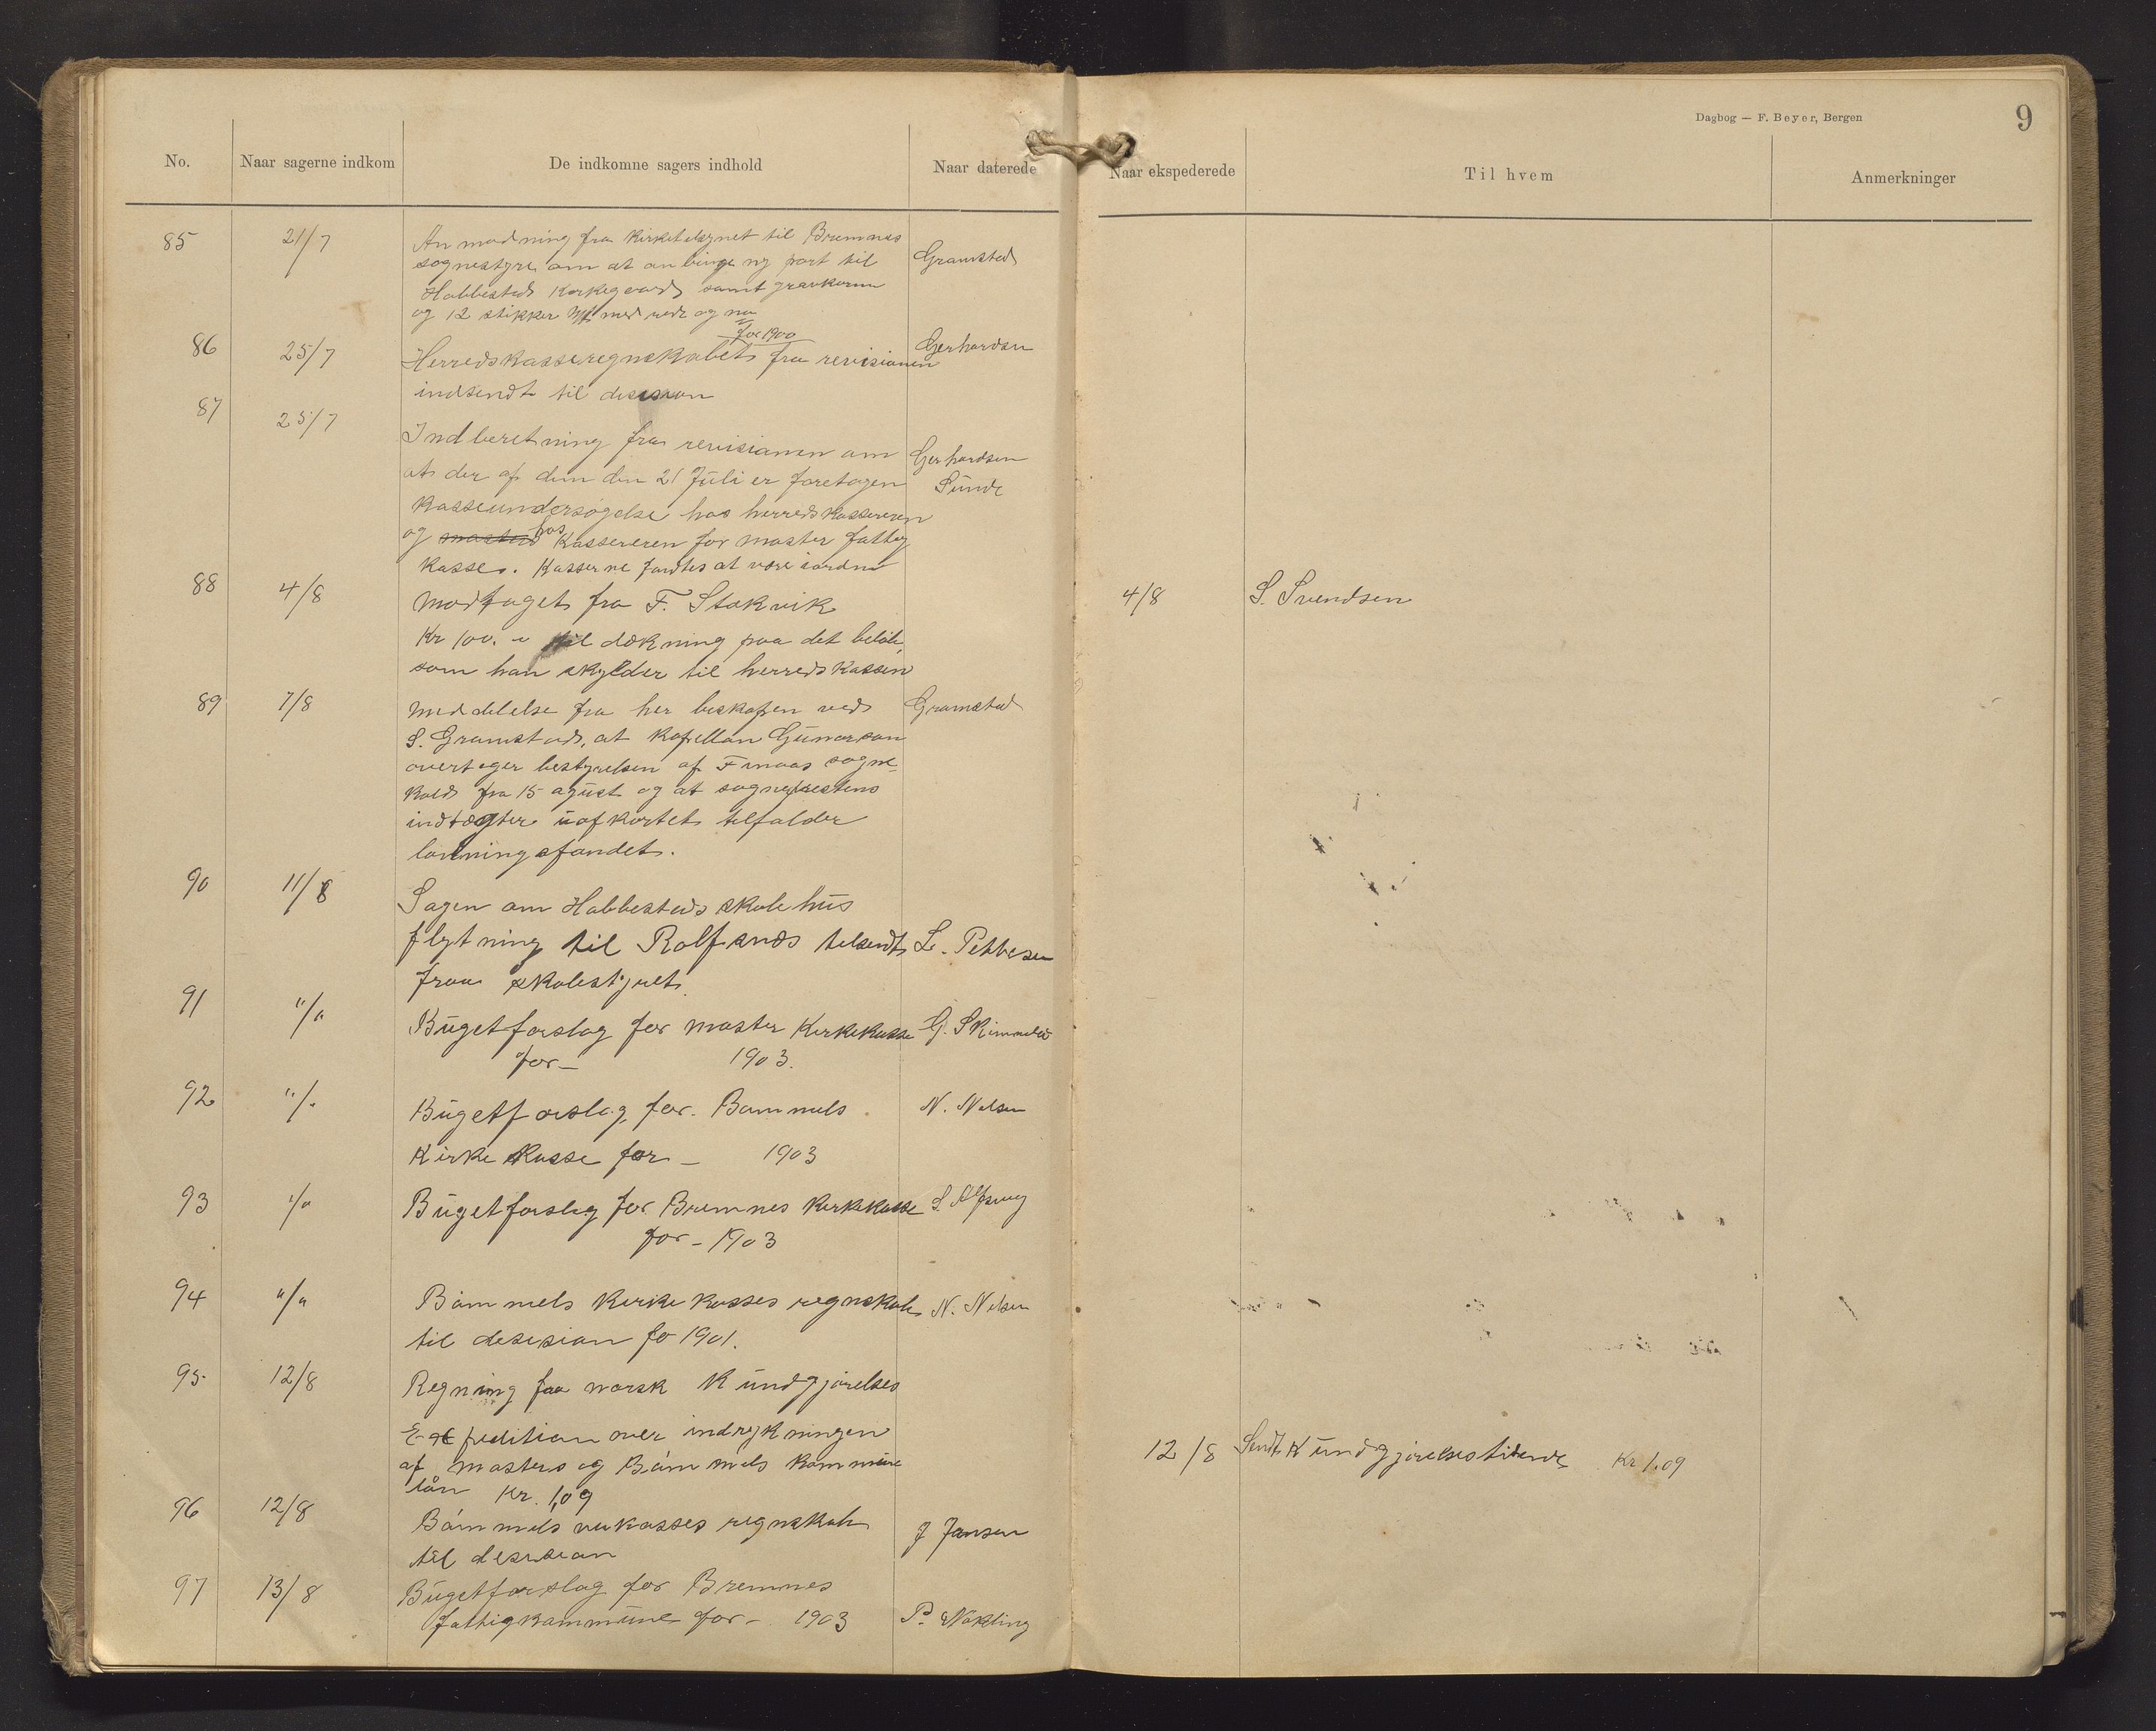 Dagbog — F. Beyer, Bergen
9
No.
Naar sagerne indkom
De indkomne sagers indhold
Naar daterede
Naar ekspederede
Til hvem
Anmerkninger
85 21/7 Anmodning fra Kirketilsynet til Bremnes
sognestyre om at anbinge ny port til Gramstad
Habbestad Kirkegaard samt
og 12 stikker med og no
for 1900
86 25/7 Herredskasseregnskabet fra revisionen Gerhardsen
indsendt til desision
87 25/7 Indberetning fra revisionen om Gerhardsen
at der af dem den 21 Juli er foretagen Sunde
Kasseundersøgelse hos herredskassereren
og hos Kassereren for moster fattig
Kasse. Kasserne fantes at være iorden
88 4/8 Modtaget fra F. Stokvik 4/8 S. Svendsen
Kr 100. til dækning paa det beløb,
som han skylder til herredskassen
89 7/8 Meddelelse fra her beskopen ved Gramstad
S. Gramstad, at kapellan Gunarson
overtager bestyrelsen af Finaas sogne-
kald fra 15 agust og at sogneprestens
indtægter uafkortet tilfalder
lønningsfondet.
90 11/8 Sagen om Habbestad skolehus
flytning til Rolfsnæs telsendt L. Pettersen
fraa skolestyret
91 "/" Bugetforslag for moster Kirkekasse G.
for — 1903.
92 "/" Bugetforslag for. Bømmels N. Nelsen
Kirke Kasse for — 1903
93 "/" Bugetforslag for Bremnes Kirkekasse S.
for — 1903
94 "/" Bømmels Kirkekasses regnskab N. Nelsen
til desision fo 1901.
95 12/8 Regning fra norsk Kundgjørelses
Expedition over indrykningen
af mosters og Bømmels Kommune 12/8 Sendt Kundgjørelsestidende Kr 1.09
lån Kr. 1,09
96 12/8 Bømmels verkasses regnskab J Jansen
til desision
97 13/8 Bugetforslag for Bremnes
fattigkommune for — 1903 P. Nøkling